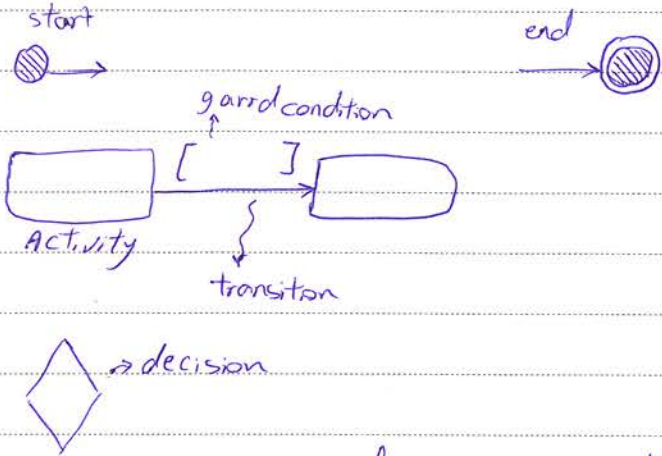 start
end
garrd condition
[ ]
Activity
transiton
decision